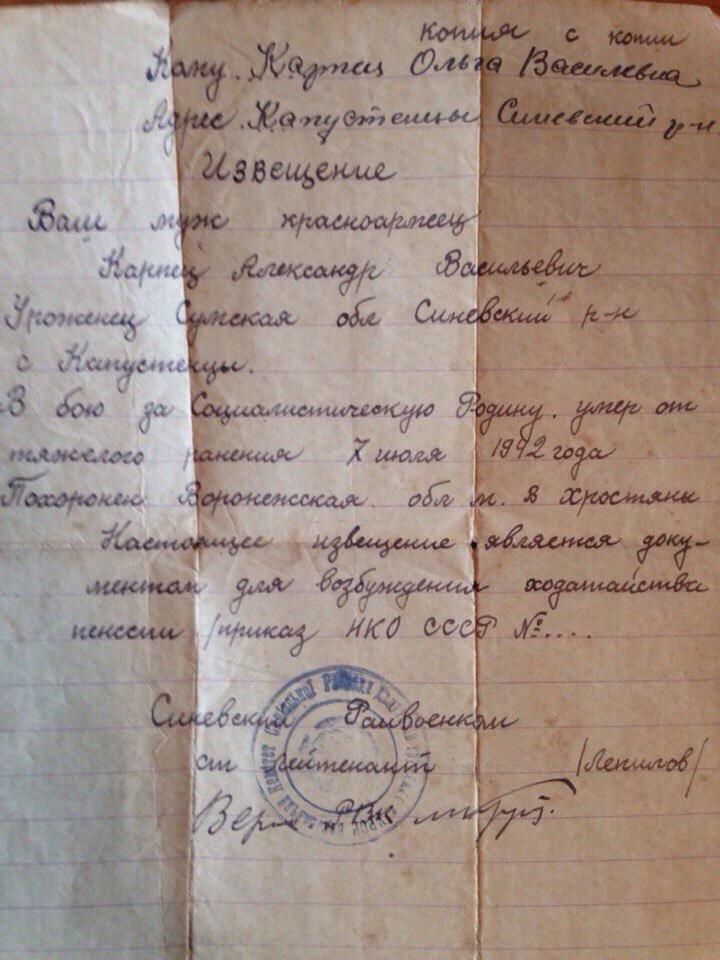 копия с копии
Кому. Карпец Ольга Василевна
Адрес. Капустенцы Синевский р-н
Извещение
Ваш муж красноармеец
Карпец Александр Васильевич
Уроженец Сумская обл Синевский р-н
с Капустенцы.
В бою за Социалистическую Родину. умер от
тяжелого ранения 7 июля 1942 года
Похоронен Воронежская обл м. В Хростяны
Настоящее извещение является доку-
ментом для возбуждения ходатайства
пенсии /приказ НКО СССР №....
Синевский Райвоенком
ст лейтенант /Лепилов/
Верно РВК